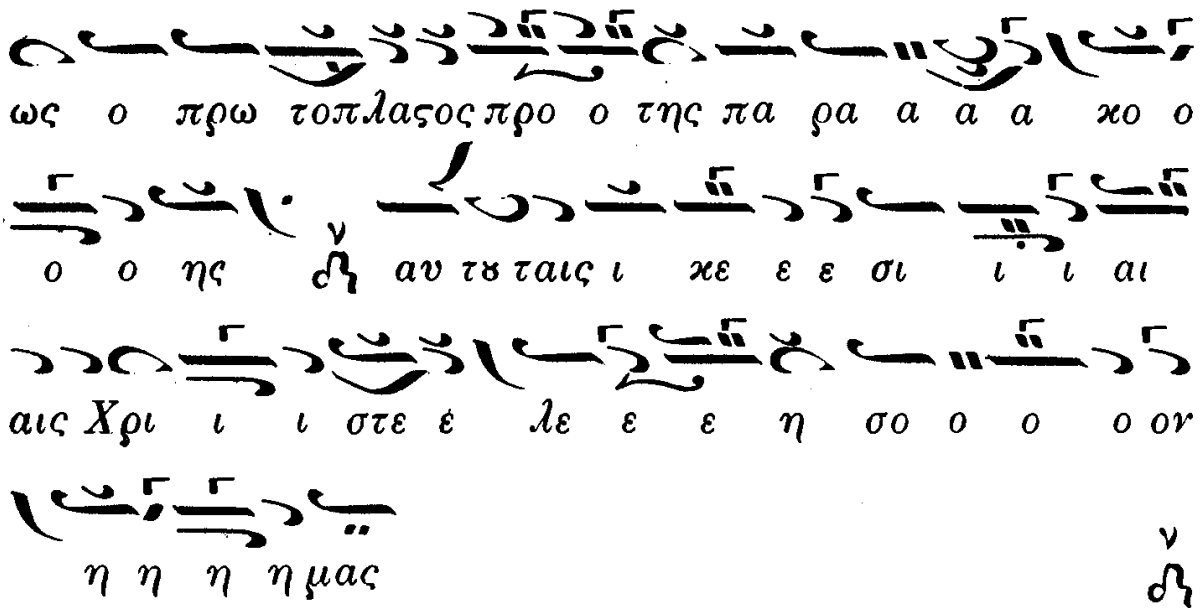 ως ο πρω τοπλαϛος προ ο της πα ρα α α α κο ο
ο ο ης ν αυ τȣ ταις ι κε ε ε σι ι ι αι
αις Χρι ι ι στε ε λε ε ε η σο ο ο ο ον
η η η η μας ν